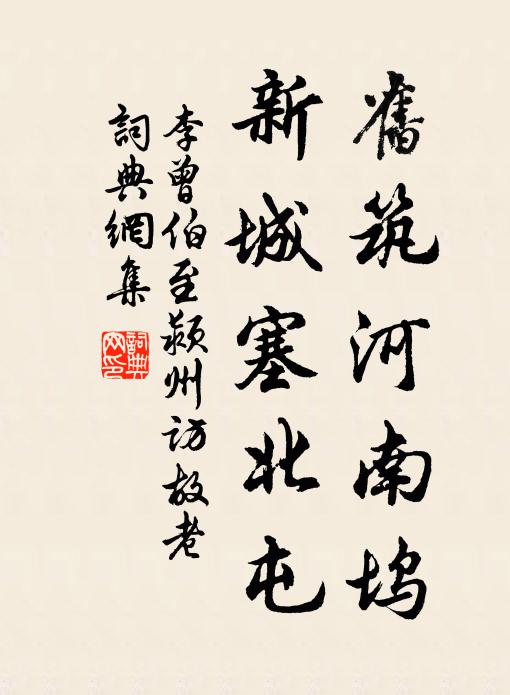 舊筑河南坞
新城塞北屯
李曾伯至颍州访故老
詞典網集
詞典网印